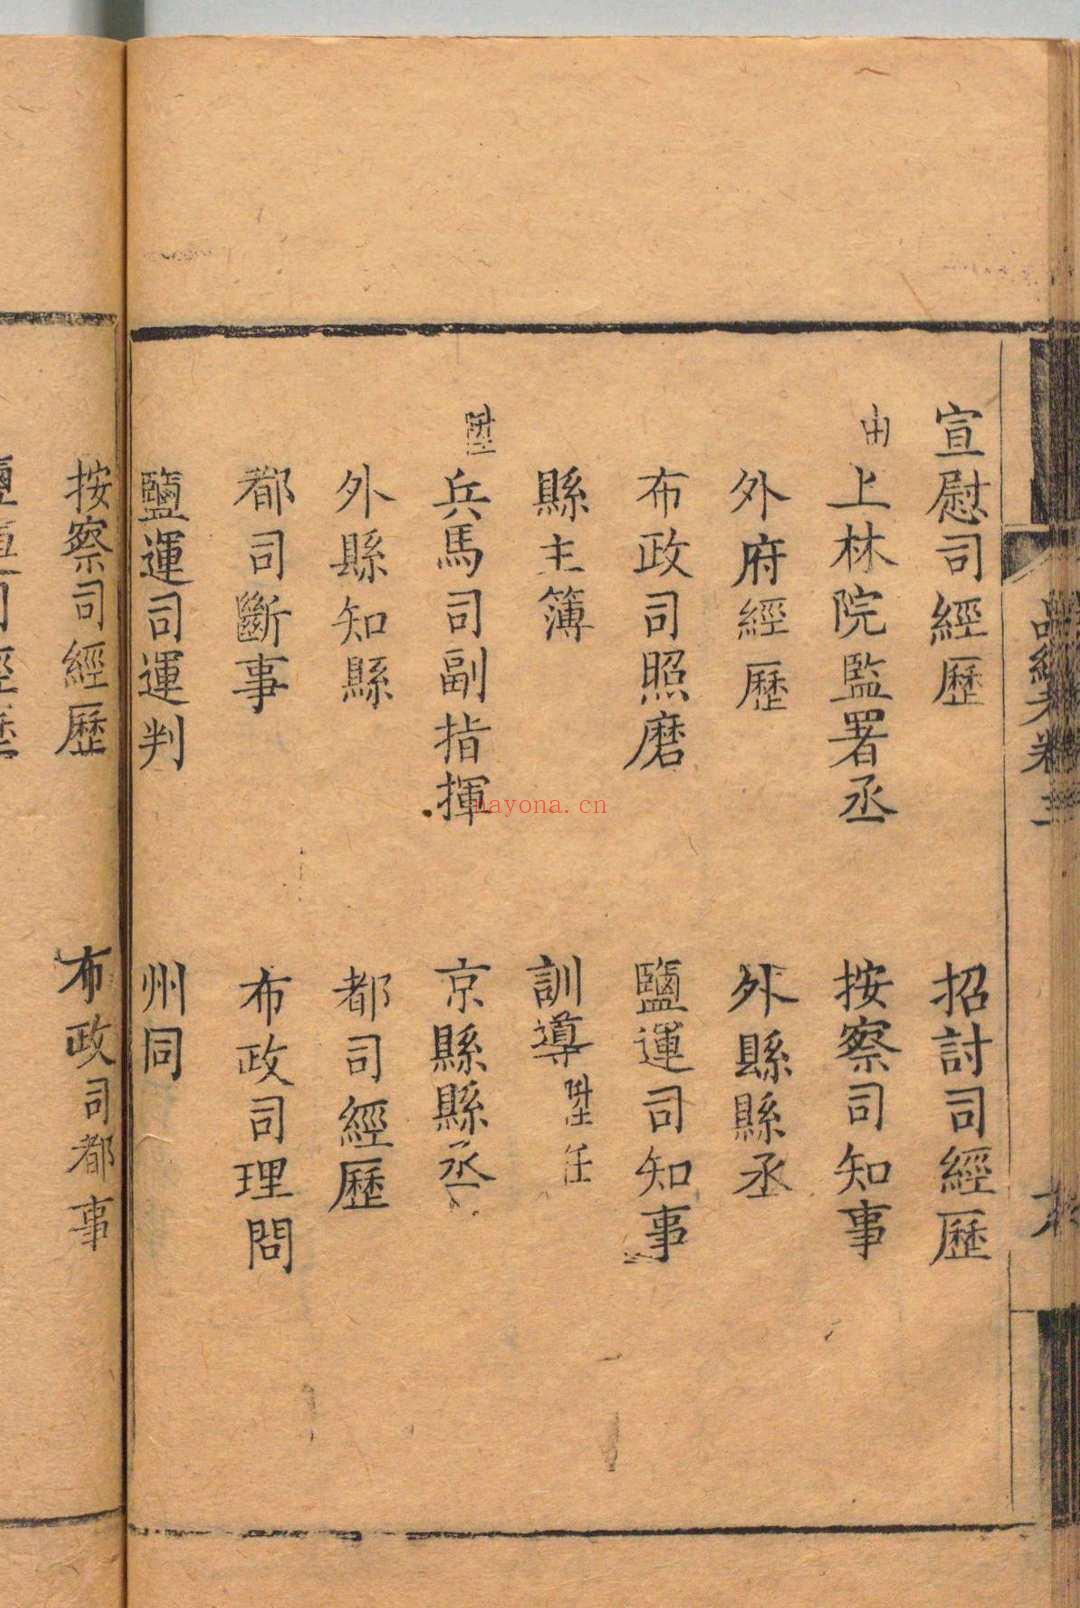 宣慰司經歷　招討司經歷
由上林院監署丞　按察司知事
外府經歷　外縣縣丞
布政司照磨　鹽運司知事
縣主簿　訓導陞任
陞兵馬司副指揮　京縣縣丞
外縣知縣　都司經歷
都司斷事　布政司理問
鹽運司運判　州同
按察司經歷　布政司都事
nayona.cn